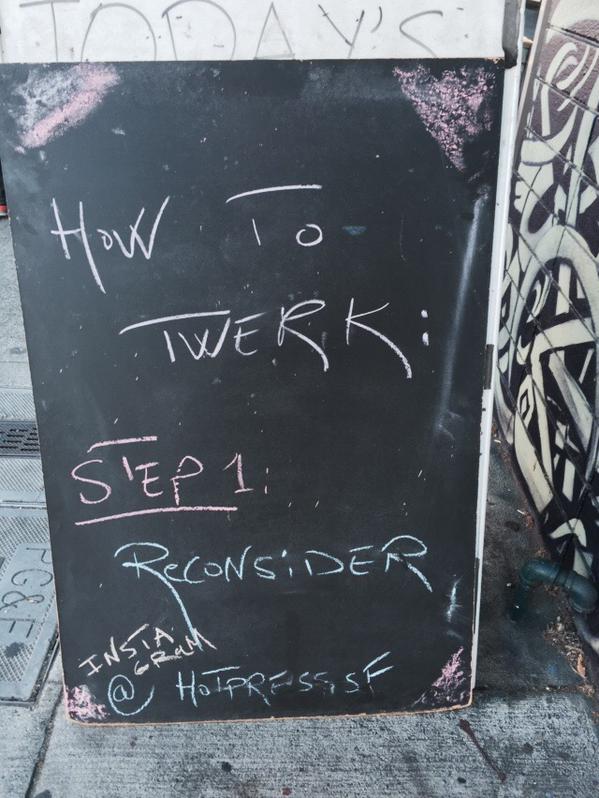 TODAY'S
HOW TO
TWERK:
STEP 1:
RECONSIDER
INSTA
GRAM
@ HOTPRESSSF
PG&E